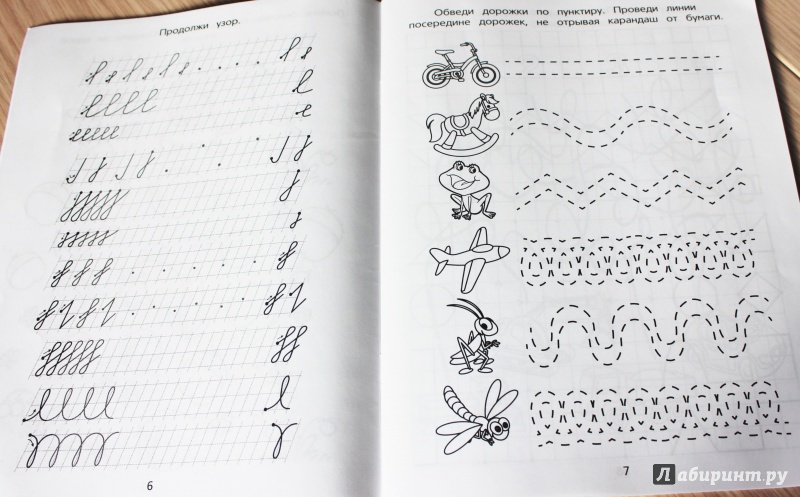 Продолжи узор.
6
Обведи дорожки по пунктиру. Проведи линии
посередине дорожек, не отрывая карандаш от бумаги.
7
Лабиринт.ру